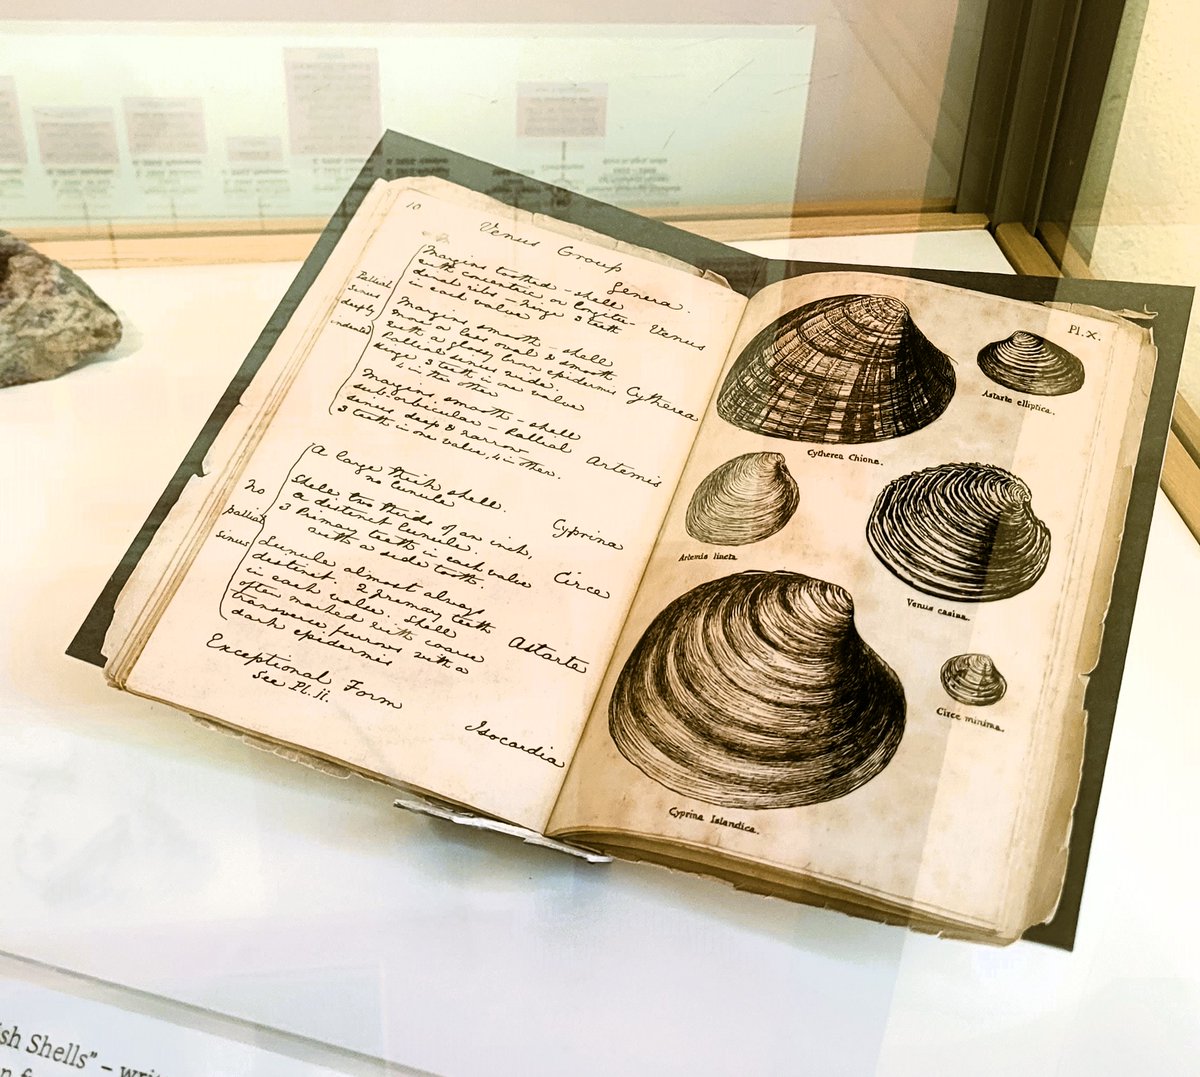 10
Venus Group
Genera.
Pallial
sinus
deeply
indented
Margins toothed - shell
with concentric or longitu-
dinal ribs - hinge 3 teeth
in each valve
Venus
Margins smooth - shell
more or less oval & smooth
with a glossy horn epidermis
Pallial sinus wide.
Hinge 3 teeth in one valve
4 in the other
Cytherea
Margins smooth - shell
sub-orbicular - Pallial
sinus deep & narrow
3 teeth in one valve, 4 in other.
Artemis
No
pallial
sinus
A large thick shell.
no lunule
Cyprina
Shell two thirds of an inch,
a distinct lunule.
3 Primary teeth in each valve
with a side tooth.
Circe
Lunule almost always
distinct. 2 primary teeth
in each valve. Shell
often marked with coarse
transverse furrows with a
dark epidermis
Astarte
Exceptional Form
See Pl. ii.
Isocardia
Pl. X.
Cytherea Chione.
Astarte elliptica.
Artemis lincta.
Venus casina.
Circe minima.
Cyprina Islandica.
ish Shells" – writ